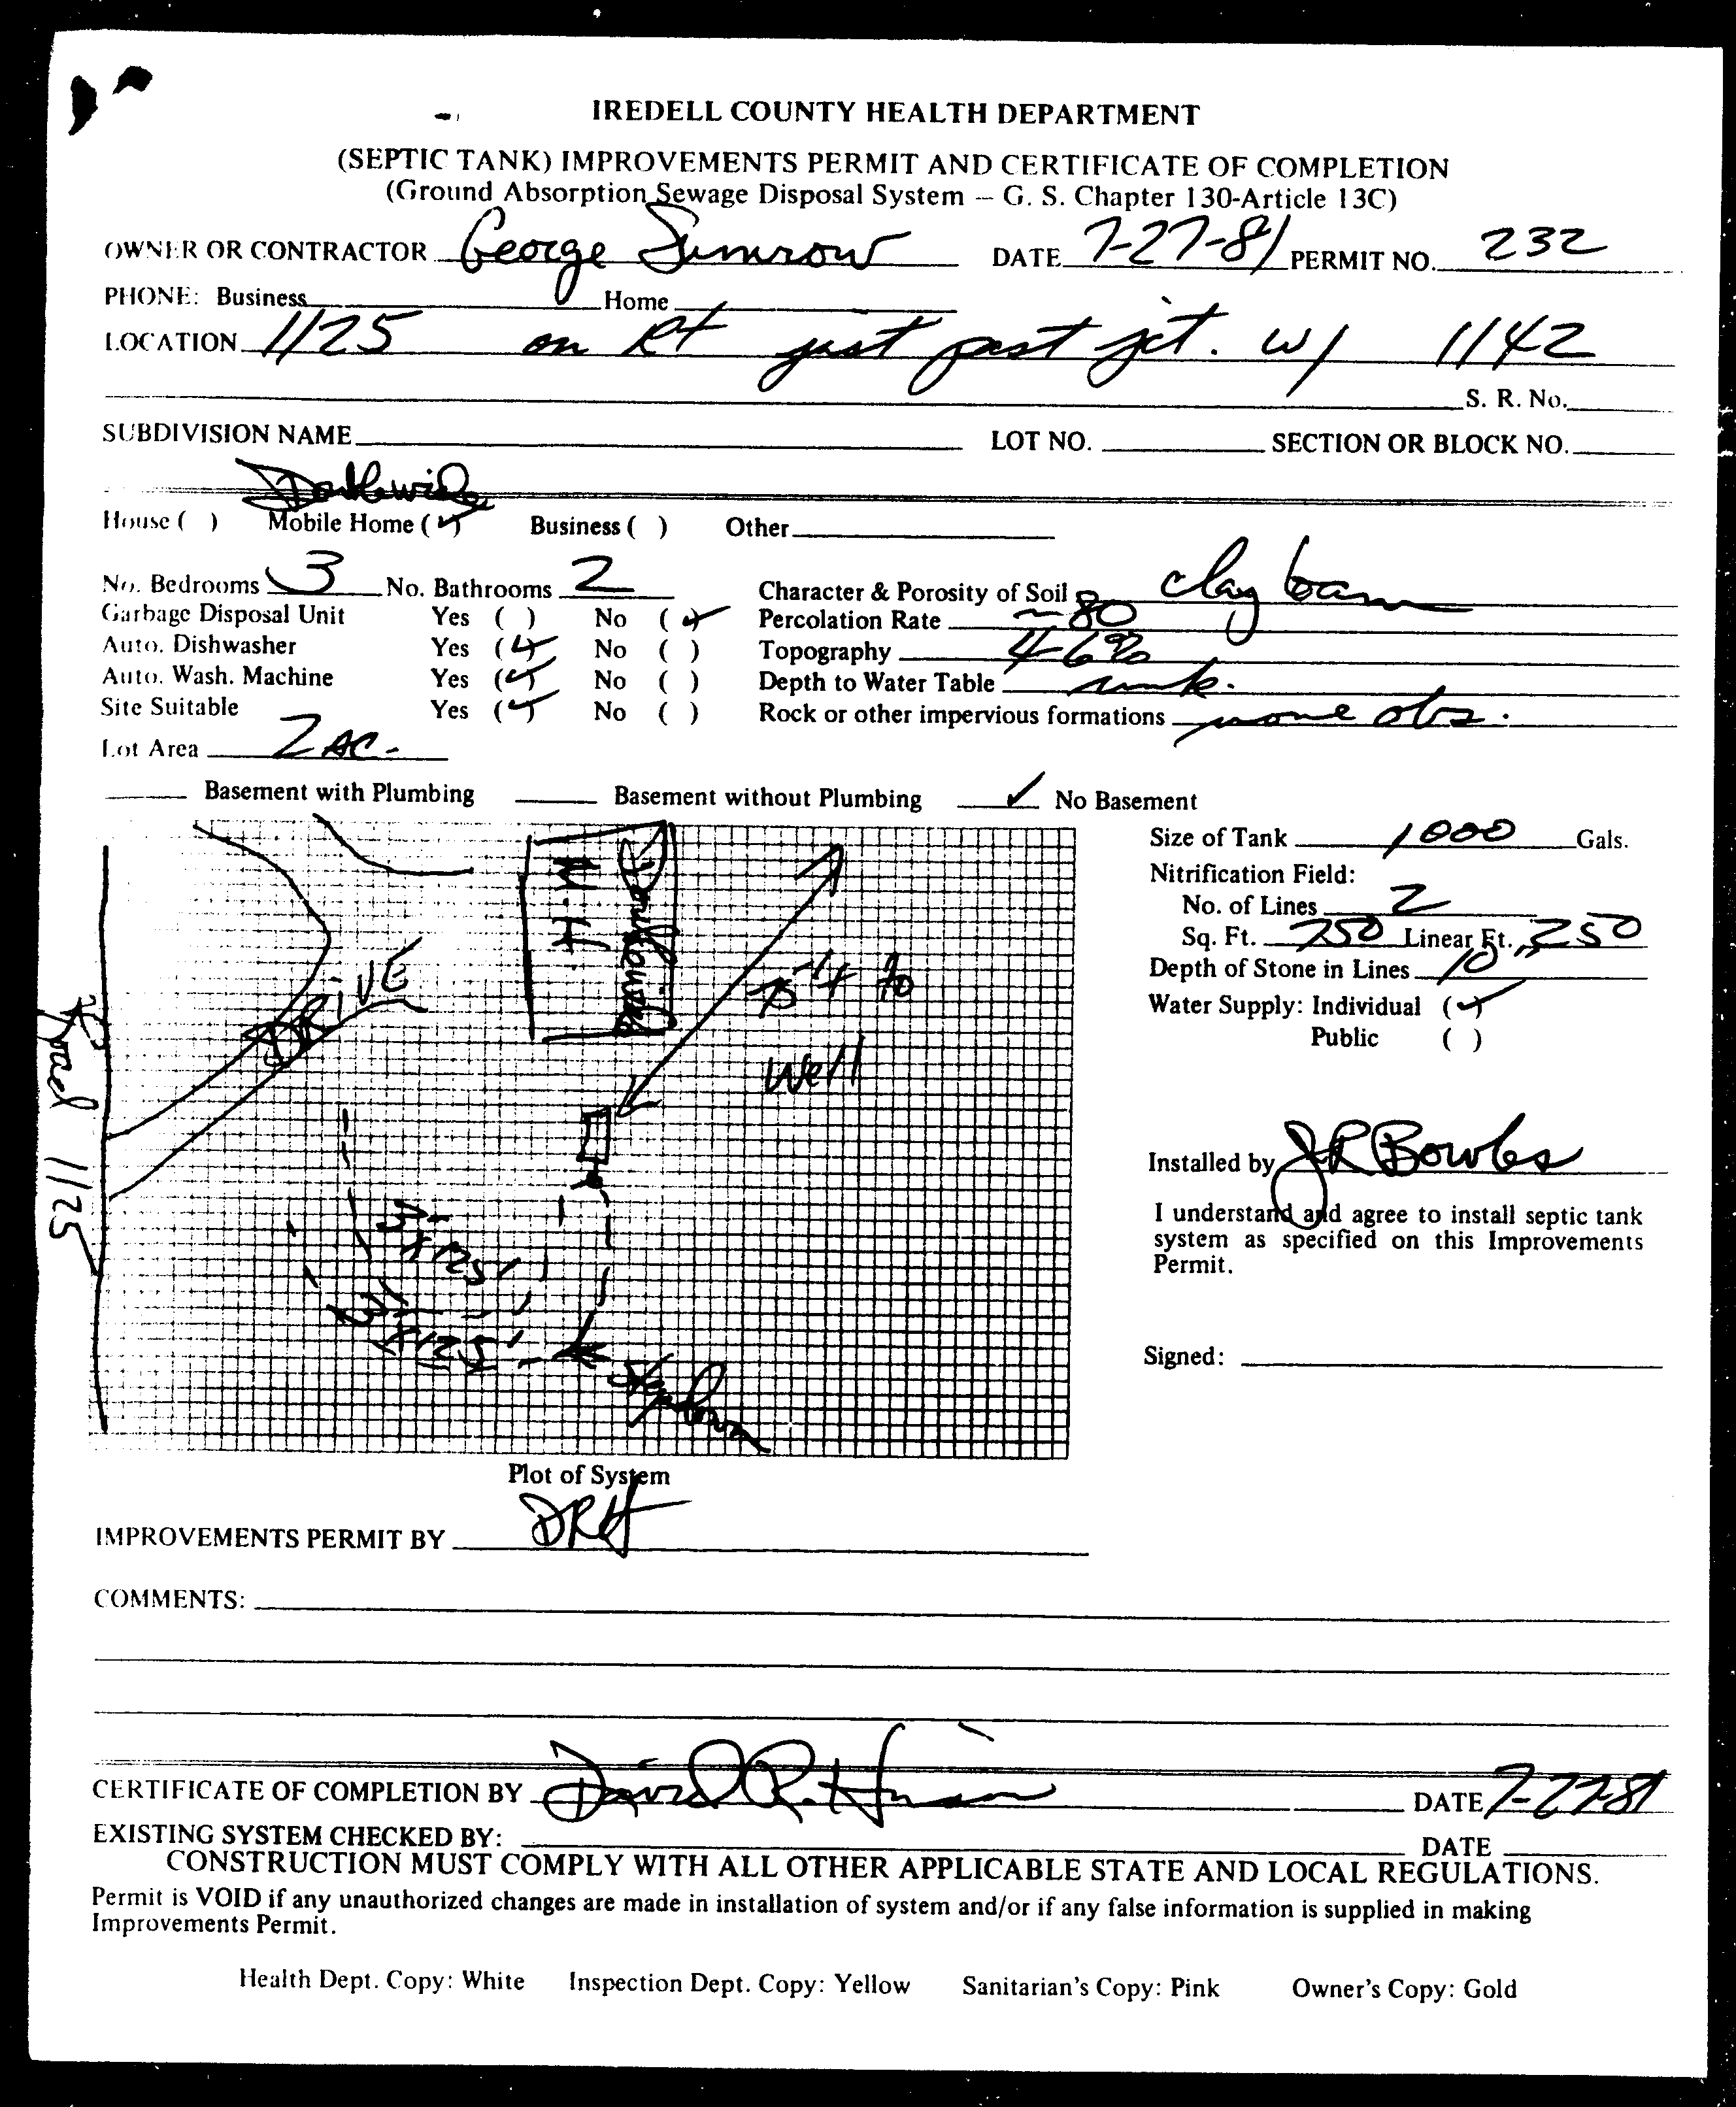 IREDELL COUNTY HEALTH DEPARTMENT
(SEPTIC TANK) IMPROVEMENTS PERMIT AND CERTIFICATE OF COMPLETION
(Ground Absorption Sewage Disposal System – G. S. Chapter 130-Article 13C)
OWNER OR CONTRACTOR George Sumrow DATE 7-27-81 PERMIT NO. 232
PHONE: Business Home
LOCATION 1125 on Rt just past jct. w/ 1142
S. R. No.
SUBDIVISION NAME LOT NO. SECTION OR BLOCK NO.
Doublewide
House ( ) Mobile Home (✓) Business ( ) Other
No. Bedrooms 3 No. Bathrooms 2 Character & Porosity of Soil clay loam
Garbage Disposal Unit Yes ( ) No (✓) Percolation Rate ~80
Auto. Dishwasher Yes (✓) No ( ) Topography 4-6%
Auto. Wash. Machine Yes (✓) No ( ) Depth to Water Table unk.
Site Suitable Yes (✓) No ( ) Rock or other impervious formations none obs.
Lot Area 2 AC.
Basement with Plumbing Basement without Plumbing ✓ No Basement
Size of Tank 1000 Gals.
Nitrification Field:
No. of Lines 2
Sq. Ft. 750 Linear Ft. 250
Depth of Stone in Lines 10"
Water Supply: Individual (✓)
Public ( )
Doublewide
M.H.
DRIVE
to
Well
Road 1125
3' x 125'
3' x 125'
Stepdown
Installed by JR Bowles
I understand and agree to install septic tank
system as specified on this Improvements
Permit.
Signed:
Plot of System
IMPROVEMENTS PERMIT BY DRH
COMMENTS:
CERTIFICATE OF COMPLETION BY David R. DATE 7-27-81
EXISTING SYSTEM CHECKED BY: DATE
CONSTRUCTION MUST COMPLY WITH ALL OTHER APPLICABLE STATE AND LOCAL REGULATIONS.
Permit is VOID if any unauthorized changes are made in installation of system and/or if any false information is supplied in making
Improvements Permit.
Health Dept. Copy: White Inspection Dept. Copy: Yellow Sanitarian's Copy: Pink Owner's Copy: Gold